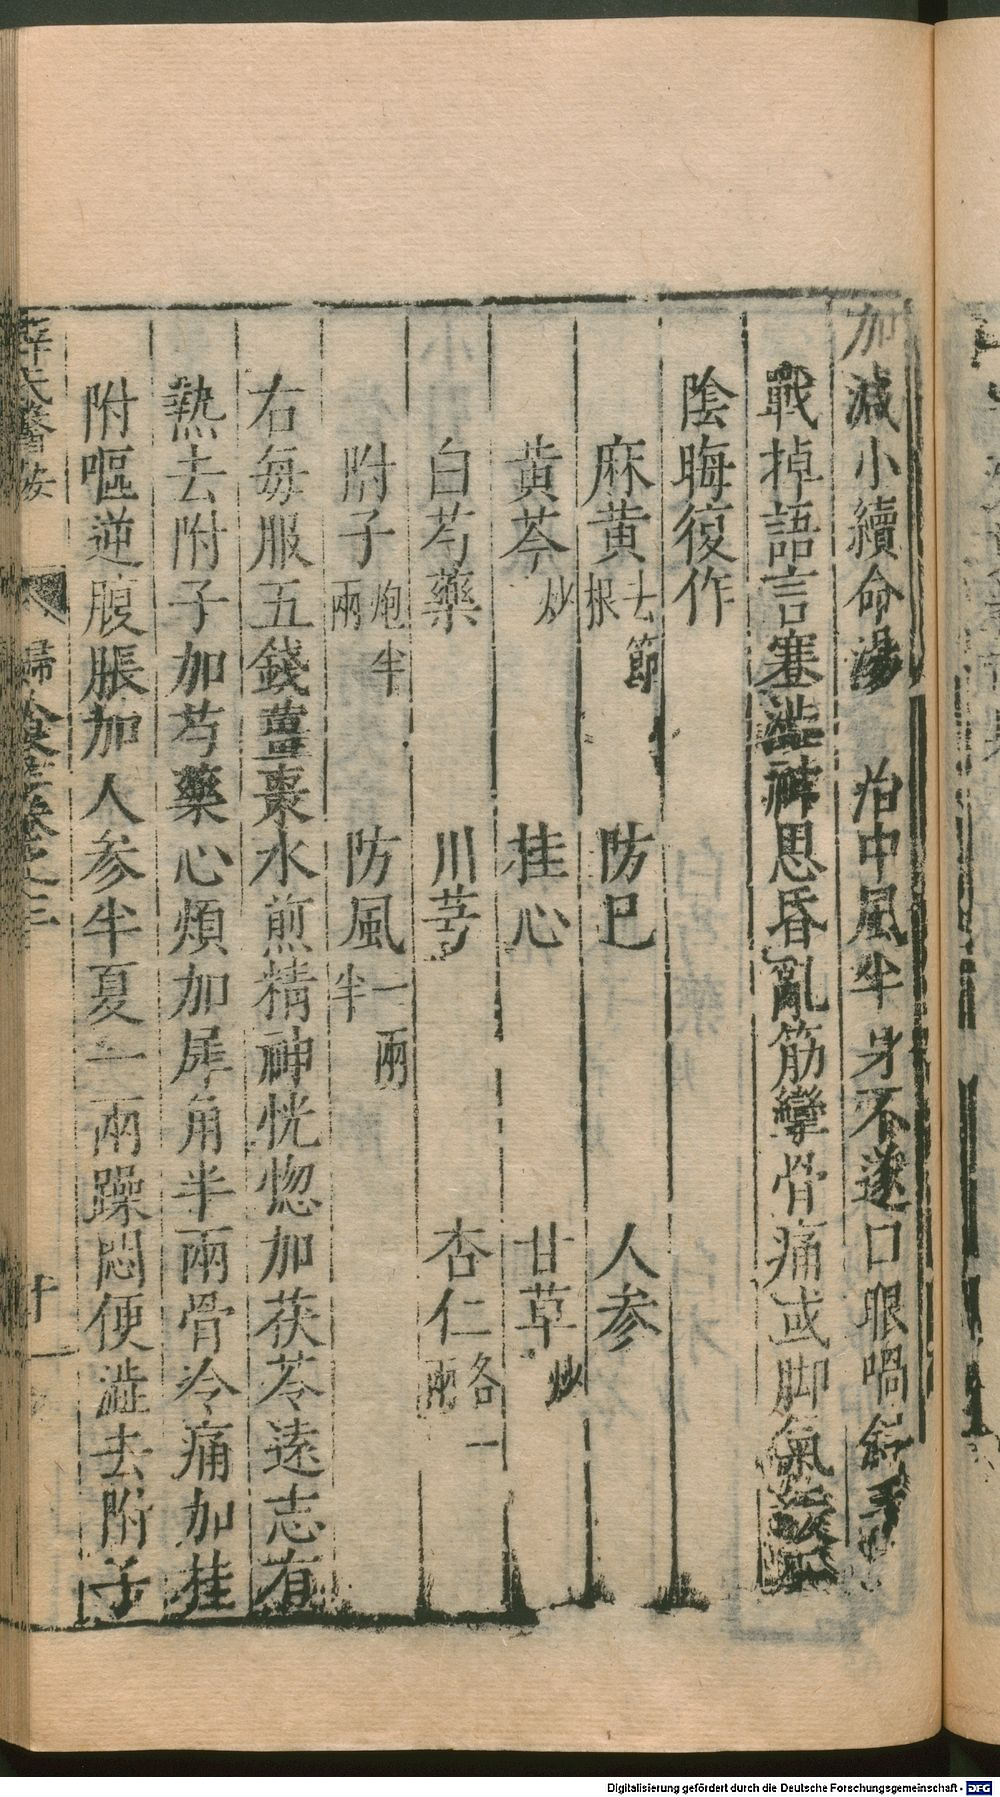 加減小續命湯　治中風半身不遂口眼喎斜手
戰掉語言蹇澁神思昏亂筋攣骨痛或脚氣緩弱
陰晦復作
麻黄去節根　防已　人参
黄芩炒　桂心　甘草炒
白芍藥　川芎　杏仁各一兩
附子炮半兩　防風一兩半
右毎服五錢薑棗水煎精神恍惚加茯苓逺志有
熱去附子加芍藥心煩加犀角半兩骨冷痛加桂
附嘔逆腹脹加人参半夏一兩躁悶便澁去附子
薛氏醫按　婦人良方卷之三　十一
Digitalisierung gefördert durch die Deutsche Forschungsgemeinschaft - DFG